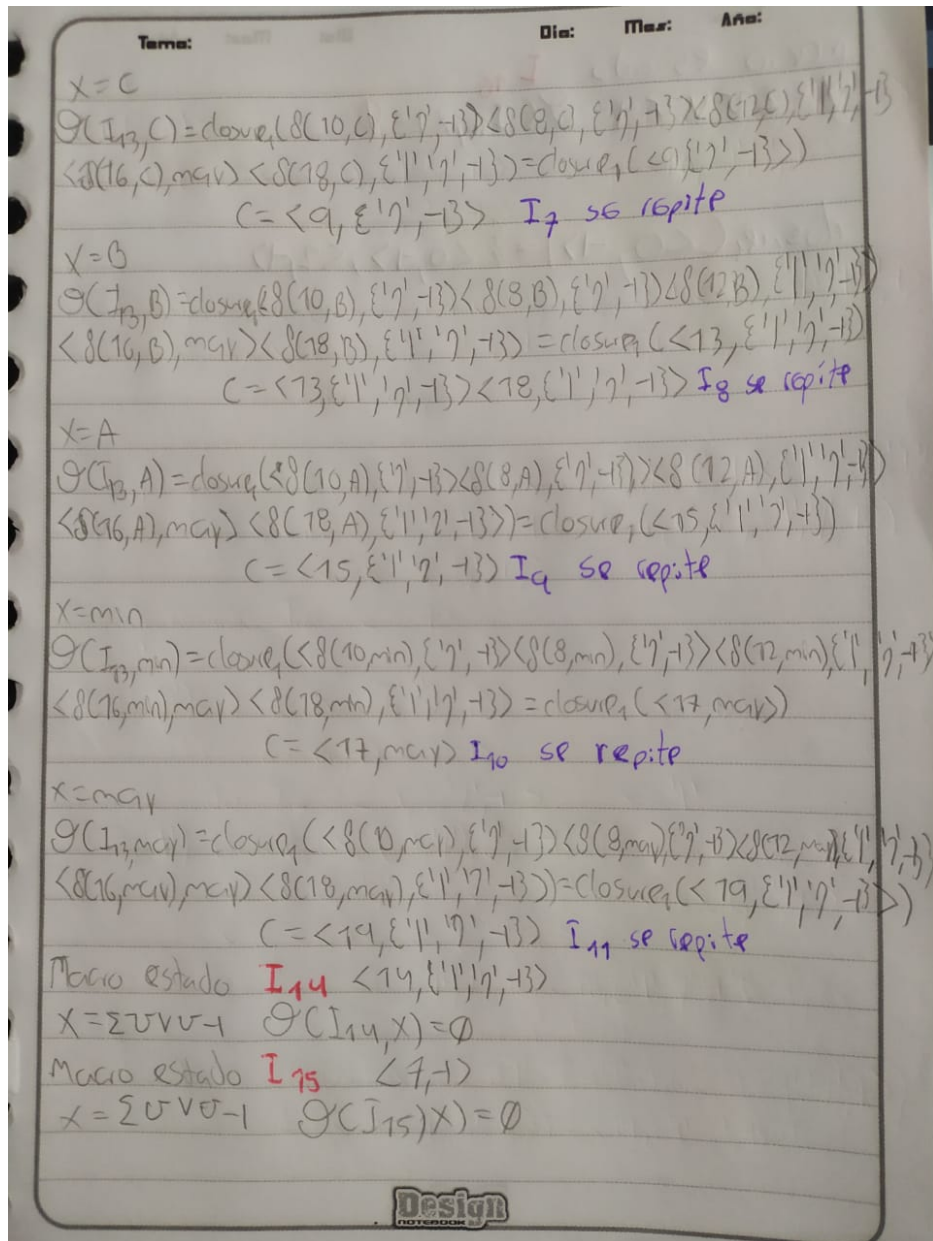 Tema: Dia: Mes: Año:
X=C
θ(I13,C)=closure1(δ(10,C),{'?',⊣}><δ(8,C),{'?',⊣}><δ(12,C),{'|','?',⊣}
<δ(16,C),may><δ(18,C),{'|','?',⊣}>=closure1(<9,{'?',⊣}>)
C=<9,{'?',⊣}> I7 se repite
X=B
θ(I13,B)=closure1<δ(10,B),{'?',⊣}><δ(8,B),{'?',⊣}><δ(12,B),{'|','?',⊣}>
<δ(16,B),may><δ(18,B),{'|','?',⊣}>=closure1(<13,{'|','?',⊣}>
C=<13,{'|','?',⊣}><18,{'|','?',⊣}> I8 se repite
X=A
θ(I13,A)=closure1(<δ(10,A),{'?',⊣}><δ(8,A),{'?',⊣}><δ(12,A),{'|','?',⊣}>
<δ(16,A),may><δ(18,A),{'|','?',⊣}>)=closure1(<15,{'|','?',⊣})
C=<15,{'|','?',⊣}> I9 se repite
X=min
θ(I13,min)=closure1(<δ(10,min),{'?',⊣}><δ(8,min),{'?',⊣}><δ(12,min),{'|','?',⊣}
<δ(16,min),may><δ(18,min),{'|','?',⊣}>=closure1(<17,may>)
C=<17,may> I10 se repite
X=may
θ(I13,may)=closure1(<δ(10,may),{'?',⊣}><δ(8,may),{'?',⊣}><δ(12,may),{'|','?',⊣}
<δ(16,may),may><δ(18,may),{'|','?',⊣}>)=closure1(<19,{'|','?',⊣}>)
C=<19,{'|','?',⊣}> I11 se repite
Macro estado I14 <14,{'|','?',⊣}>
X=Σ∪V∪⊣ θ(I14,X)=∅
Macro estado I15 <7,⊣>
X=Σ∪V∪⊣ θ(I15,X)=∅
Design
NOTEBOOK